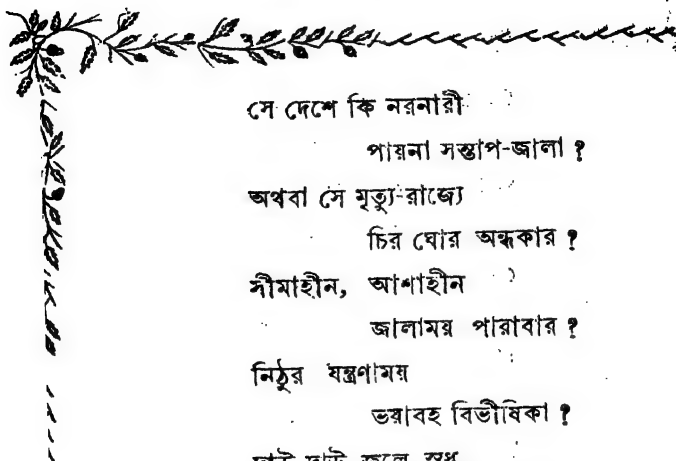 সে দেশে কি নরনারী
পায়না সন্তাপ-জ্বালা ?
অথবা সে মৃত্যু-রাজ্যে
চির ঘোর অন্ধকার ?
সীমাহীন, আশাহীন
জ্বালাময় পারাবার ?
নিঠুর যন্ত্রণাময়
ভয়াবহ বিভীষিকা ?